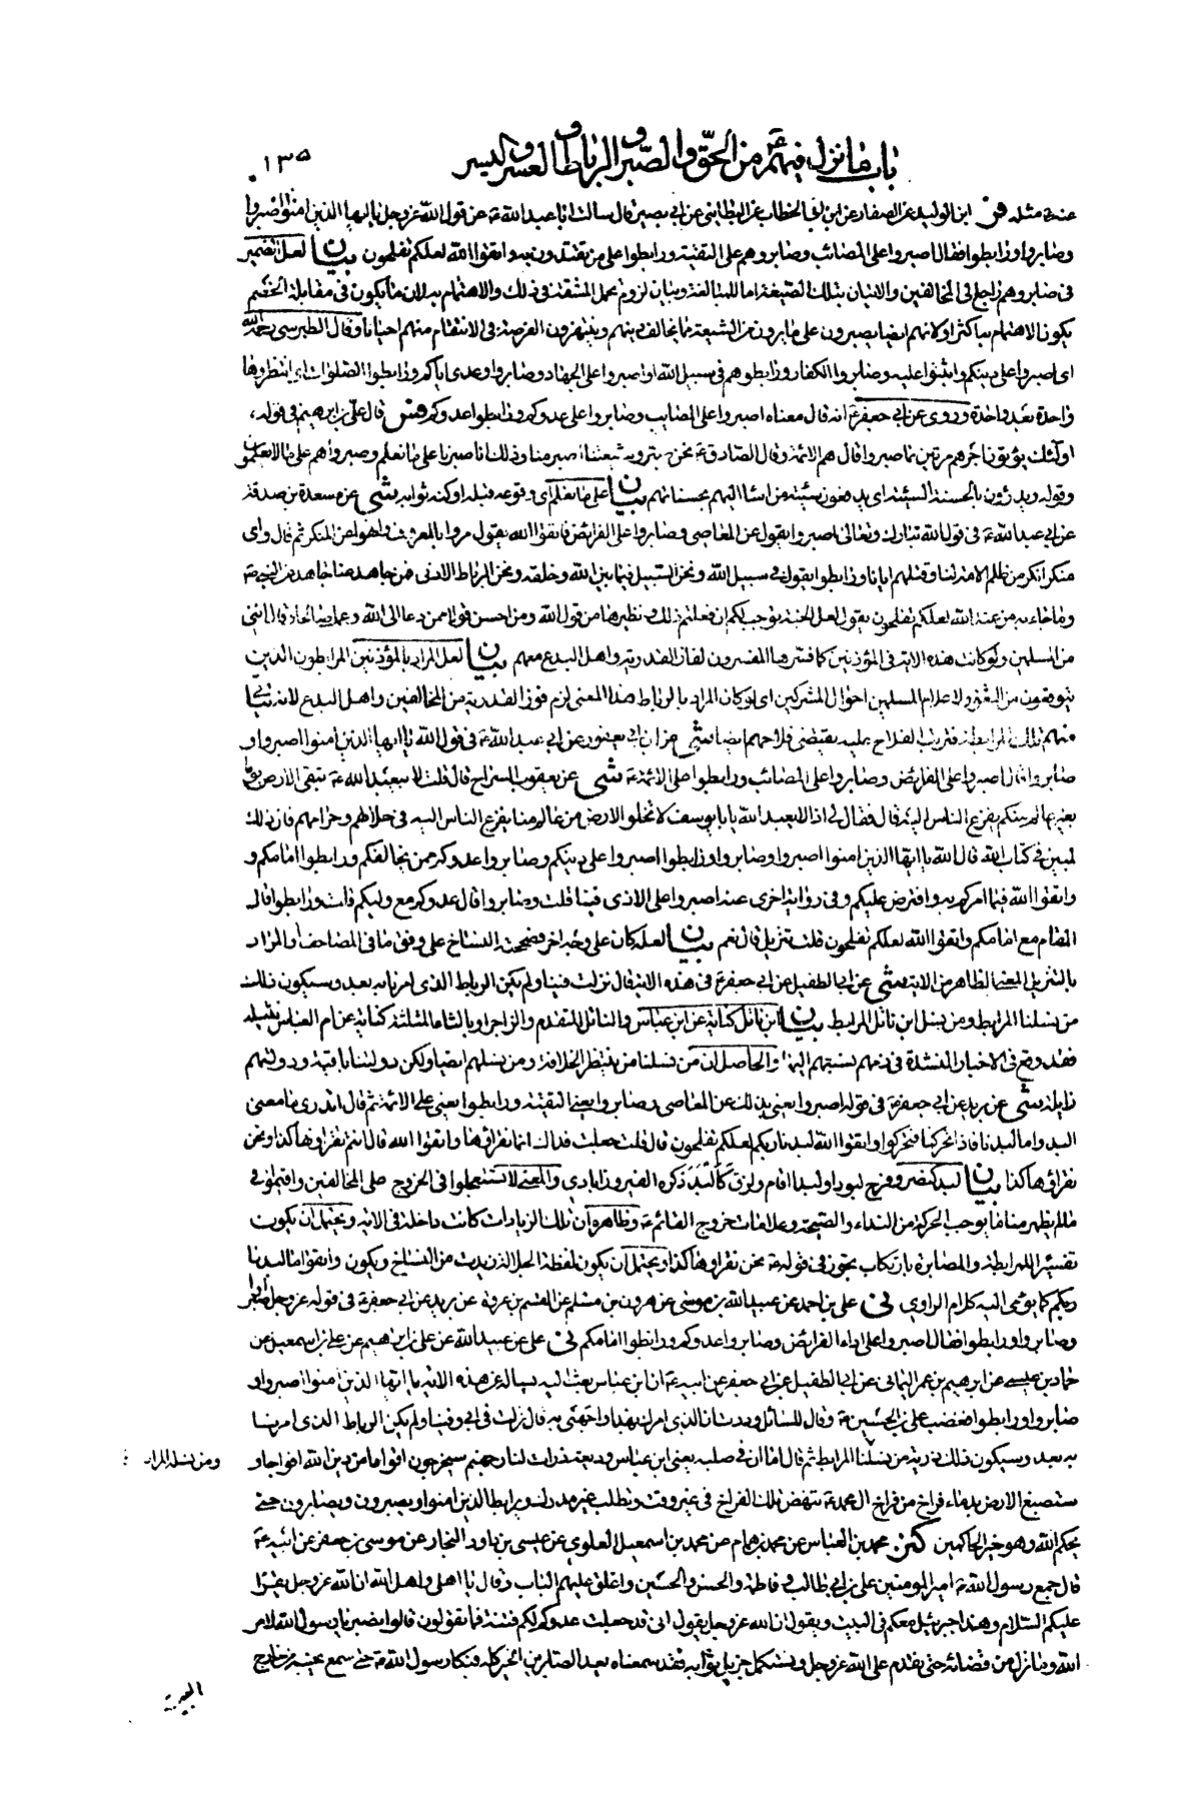 باب ما نزل فيهم ع من الحق والصبر والرباط والعسر واليسر
١٣٥
عنه ع مثله فس ابن الوليد عن الصفار عن ابن ابي الخطاب عن البطايني عن ابي بصير قال سالت ابا عبد الله ع عن قول الله عز وجل يا ايها الذين امنوا اصبروا
وصابروا ورابطوا فقال اصبروا على المصائب وصابروهم على التقية ورابطوا على من تقتدون به واتقوا الله لعلكم تفلحون بيان لعل الضمير
في صابروهم راجع الى المخالفين والاتيان بتلك الصيغة اما للمبالغة وبيان لزوم تحمل المشقة في ذلك والاهتمام به لان ما يكون في مقابلة الخصم
يكون الاهتمام به اكثر او لانهم ايضا يصبرون على ما يرون من الشيعة مما يخالف دينهم وينتهزون الفرصة في الانتقام منهم احيانا وقال الطبرسي رحمه الله
اي اصبروا على دينكم واثبتوا عليه وصابروا الكفار ورابطوهم في سبيل الله او اصبروا على الجهاد وصابروا وعدي اياكم ورابطوا الصلوات اي انتظروها
واحدة بعد واحدة وروي عن ابي جعفر ع انه قال معناه اصبروا على المصايب وصابروا على عدوكم ورابطوا عدوكم فس قال علي بن ابرهيم في قوله
اولئك يؤتون اجرهم مرتين بما صبروا قال هم الائمة وقال الصادق ع نحن صبر وشيعتنا اصبر منا وذلك انا صبرنا على ما نعلم وصبروا هم على ما لا يعلمون
وقوله ويدرؤن بالحسنة السيئة اي يدفعون سيئة من اساء اليهم بحسناتهم بيان على ما نعلم اي وقوعه قبله او كنه ثوابه شي عن مسعدة بن صدقة
عن ابي عبد الله ع في قول الله تبارك وتعالى اصبروا يقول عن المعاصي وصابروا على الفرائض واتقوا الله يقول مروا بالمعروف وانهوا عن المنكر ثم قال واي
منكر انكر من ظلم الامة لنا وقتلهم ايانا ورابطوا يقول في سبيل الله ونحن السبيل فيما بين الله وخلقه ونحن الرباط الادنى فمن جاهد عنا جاهد عن النبي ص
وما جاء به من عند الله لعلكم تفلحون يقول لعل الجنة توجب لكم ان فعلتم ذلك ونظيرها من قول الله ومن احسن قولا ممن دعا الى الله وعمل صالحا وقال انني
من المسلمين ولو كانت هذه الاية في المؤذنين كما فسرها المفسرون لفاز القدرية واهل البدع معهم بيان لعل المراد بالمؤذنين المرابطون الذين
يتوقعون من الثغور لاعلام المسلمين احوال المشركين اي لو كان المراد بالرباط هذا المعنى لزم فوز القدرية من المخالفين واهل البدع لانه يتاتى
منهم تلك المرابطة فترتب الفلاح عليه يقتضي فلاحهم ايضا شي عن ابن ابي يعفور عن ابي عبد الله ع في قول الله يا ايها الذين امنوا اصبروا و
صابروا قال اصبروا على الفرائض وصابروا على المصائب ورابطوا على الائمة ع شي عن يعقوب السراج قال قلت لابي عبد الله ع تبقى الارض يوما
بغير عالم منكم يفزع الناس اليه قال فقال لي اذا لا يعبد الله يا با يوسف لا تخلوا الارض من عالم منا يفزع الناس اليه في حلالهم وحرامهم فان ذلك
لمبين في كتاب الله قال الله يا ايها الذين امنوا اصبروا وصابروا ورابطوا اصبروا على دينكم وصابروا عدوكم ممن يخالفكم ورابطوا امامكم و
واتقوا الله فيما امركم به وافترض عليكم وفي رواية اخرى عنه اصبروا على الاذى فينا قلت وصابروا قال عدوكم مع وليكم قلت ورابطوا قال
المقام مع امامكم واتقوا الله لعلكم تفلحون قلت تنزيل قال نعم بيان لعله كان على وجه اخر فصححته النساخ على وفق ما في المصاحف او المراد
بالتنزيل المعنى الظاهر من الاية شي عن ابي الطفيل عن ابي جعفر ع في هذه الاية قال نزلت فينا ولم يكن الرباط الذي امرنا به بعد وسيكون ذلك
من نسلنا المرابط ومن نسل ابن ناثل المرابط بيان ابن ناثل كناية عن ابن عباس والناتل المتقدم والزاجر او بالثاء المثلثة كناية عن ام العباس نثيلة
فقد وقع في الاخبار المنشدة في ذمهم نسبتهم اليها والحاصل ان من نسلنا من ينتظر الخلافة ومن نسلهم ايضا ولكن دولتنا باقية ودولتهم
زايلة شي عن بريد عن ابي جعفر ع في قوله اصبروا يعني بذلك عن المعاصي وصابروا يعني التقية ورابطوا يعني على الائمة ثم قال اتدري ما معنى
البدوا ما لبدنا فاذا تحركنا فتحركوا واتقوا الله لبدنا ربكم لعلكم تفلحون قال قلت جعلت فداك انما نقراها واتقوا الله قال انتم تقراونها كذا ونحن
نقراها هكذا بيان لبد كنصر وفرح لبودا ولبدا اقام ولزق كالبد ذكره الفيروزابادي والمعنى لا تستعجلوا في الخروج على المخالفين واقيموا في
ما لم يظهر منا ما يوجب الحركة من النداء والصيحة وعلامات خروج القائم ع وظاهره ان تلك الزيادات كانت داخلة في الاية ويحتمل ان يكون
تفسيرا للمرابطة والمصابرة بارتكاب تجوز في قوله ع نحن نقراوها كذا ويحتمل ان يكون لفظة الجلالة زيدت من النساخ ويكون واتقوا ما لبدنا
ربكم كما يومي اليه كلام الراوي ني علي بن احمد عن عبيد الله بن موسى عن هرون بن مسلم عن القسم بن عروة عن بريد عن ابي جعفر ع في قوله عز وجل اصبروا
وصابروا ورابطوا فقال اصبروا على اداء الفرائض وصابروا عدوكم ورابطوا امامكم ني علي عن عبيد الله عن علي بن ابرهيم عن علي بن اسمعيل عن
حماد بن عيسى عن ابرهيم بن عمر اليماني عن ابي الطفيل عن ابي جعفر عن ابيه ع ان ابن عباس بعث اليه يساله عن هذه الاية يا ايها الذين امنوا اصبروا و
صابروا ورابطوا فغضب علي بن الحسين ع وقال للسائل وددت ان الذي امرك بهذا واجهني به قال نزلت في ابي وفينا ولم يكن الرباط الذي امرنا
به بعد وسيكون ذلك ذرية من نسلنا المرابط ثم قال اما ان في صلبه يعني ابن عباس وديعة ذرات لنار جهنم سيخرجون اقواما من دين الله افواجا و
ومن نسله المرابط
ستصبغ الارض بدماء فراخ من فراخ ال محمد ع تنهض تلك الفراخ في غير وقت وتطلب غير مدرك ويرابط الذين امنوا ويصبرون ويصابرون حتى
يحكم الله وهو خير الحاكمين كنز محمد بن العباس عن محمد بن همام عن محمد بن اسمعيل العلوي عن عيسى بن داود النجار عن موسى بن جعفر عن ابيه ع
قال جمع رسول الله ص امير المومنين علي بن ابي طالب وفاطمة والحسن والحسين واغلق عليهم الباب وقال يا اهلي واهل الله ان الله عز وجل يقرا
عليكم السلام وهذا جبرئيل معكم في البيت ويقول ان الله عز وجل يقول اني قد جعلت عدوكم لكم فتنة فما تقولون قالوا نصبر يا رسول الله لامر
الله وما نزل من قضائه حتى نقدم على الله عز وجل ونستكمل جزيل ثوابه فقد سمعناه يعد الصابرين الخير كله فبكا رسول الله ص حتى سمع نحيبه من خارج
البيت